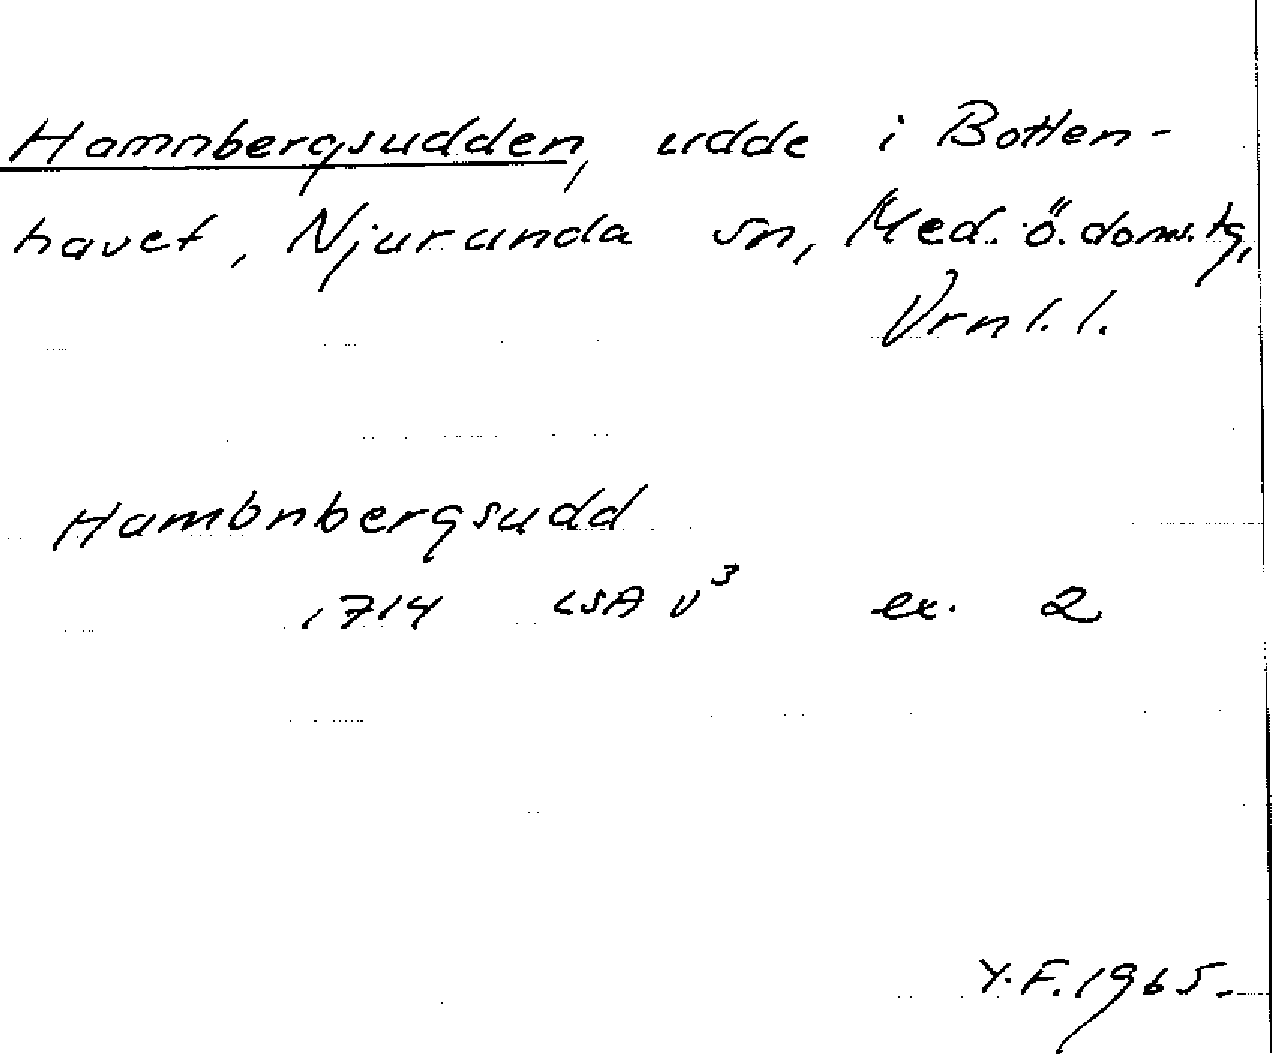 Hamnbergsudden, udde i Botten-
havet, Njurunda sn, Med. ö. doms. tg,
Vrnl. l.
Hambnbergsudd
1714 LSA v³ ex. 2
Y.F. 1965.